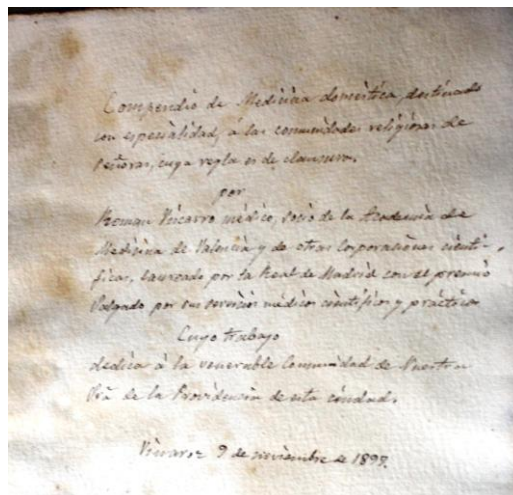 Compendio de Medicina doméstica, destinado
con especialidad, á las comunidades religiosas de
Señoras, cuya regla es de clausura.
por
Roman Vizcarro médico, socio de la Academia de
Medicina de Valencia y de otras corporaciones cientí-
ficas, laureado por la Real de Madrid con el premio
Salgado por sus servicios médicos científicos y prácticos
Cuyo trabajo
dedica á la venerable Comunidad de Nuestra
Srâ de la Providencia de esta ciudad.
Vinaroz 9 de noviembre de 1899.